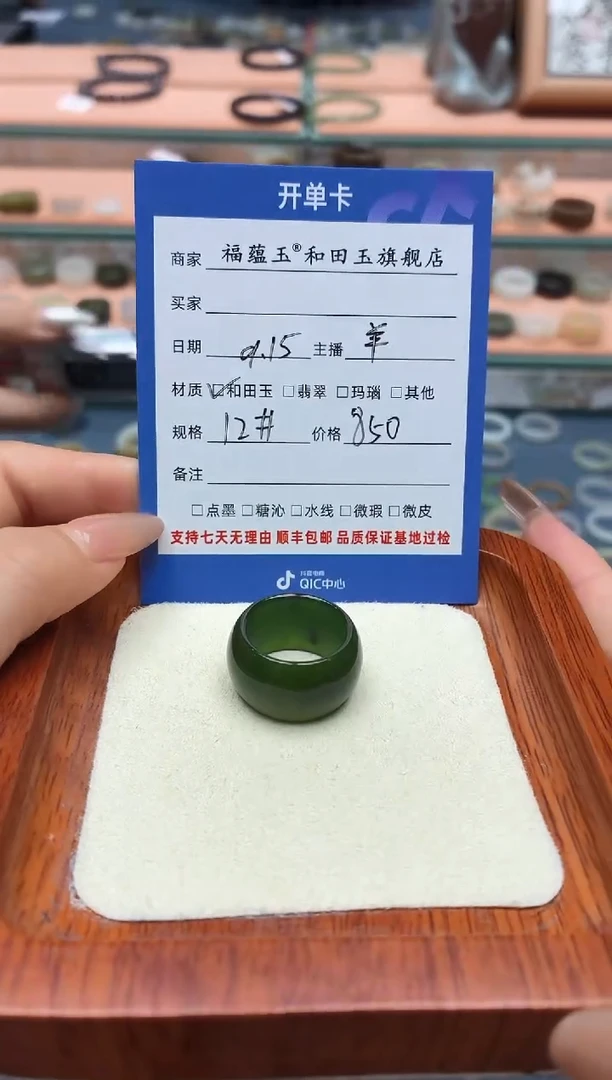 开单卡
商家 福蕴玉®和田玉旗舰店
买家
日期 9.15 主播 羊
材质 ☑和田玉 □翡翠 □玛瑙 □其他
规格 12# 价格 850
备注
□点墨 □糖沁 □水线 □微瑕 □微皮
支持七天无理由 顺丰包邮 品质保证基地过检
抖音电商
QIC中心